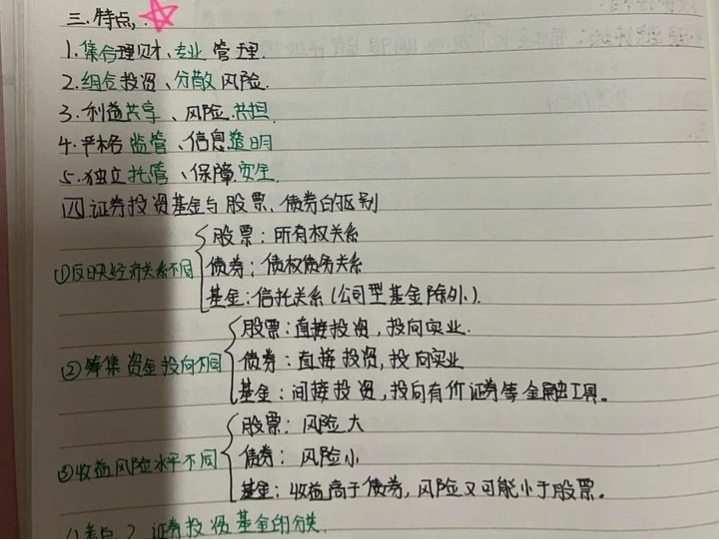 三.特点,
1.集合理财、专业管理.
2.组合投资、分散风险.
3.利益共享、风险共担.
4.严格监管、信息透明
5.独立托管、保障安全.
四 证券投资基金与股票、债券的区别
①反映经济关系不同
股票：所有权关系
债券：债权债务关系
基金：信托关系(公司型基金除外).
②筹集资金投向不同
股票：直接投资,投向实业.
债券：直接投资,投向实业
基金：间接投资,投向有价证券等金融工具。
③收益风险水平不同
股票：风险大
债券：风险小
基金：收益高于债券,风险又可能小于股票。
考点2 证券投资基金的分类.